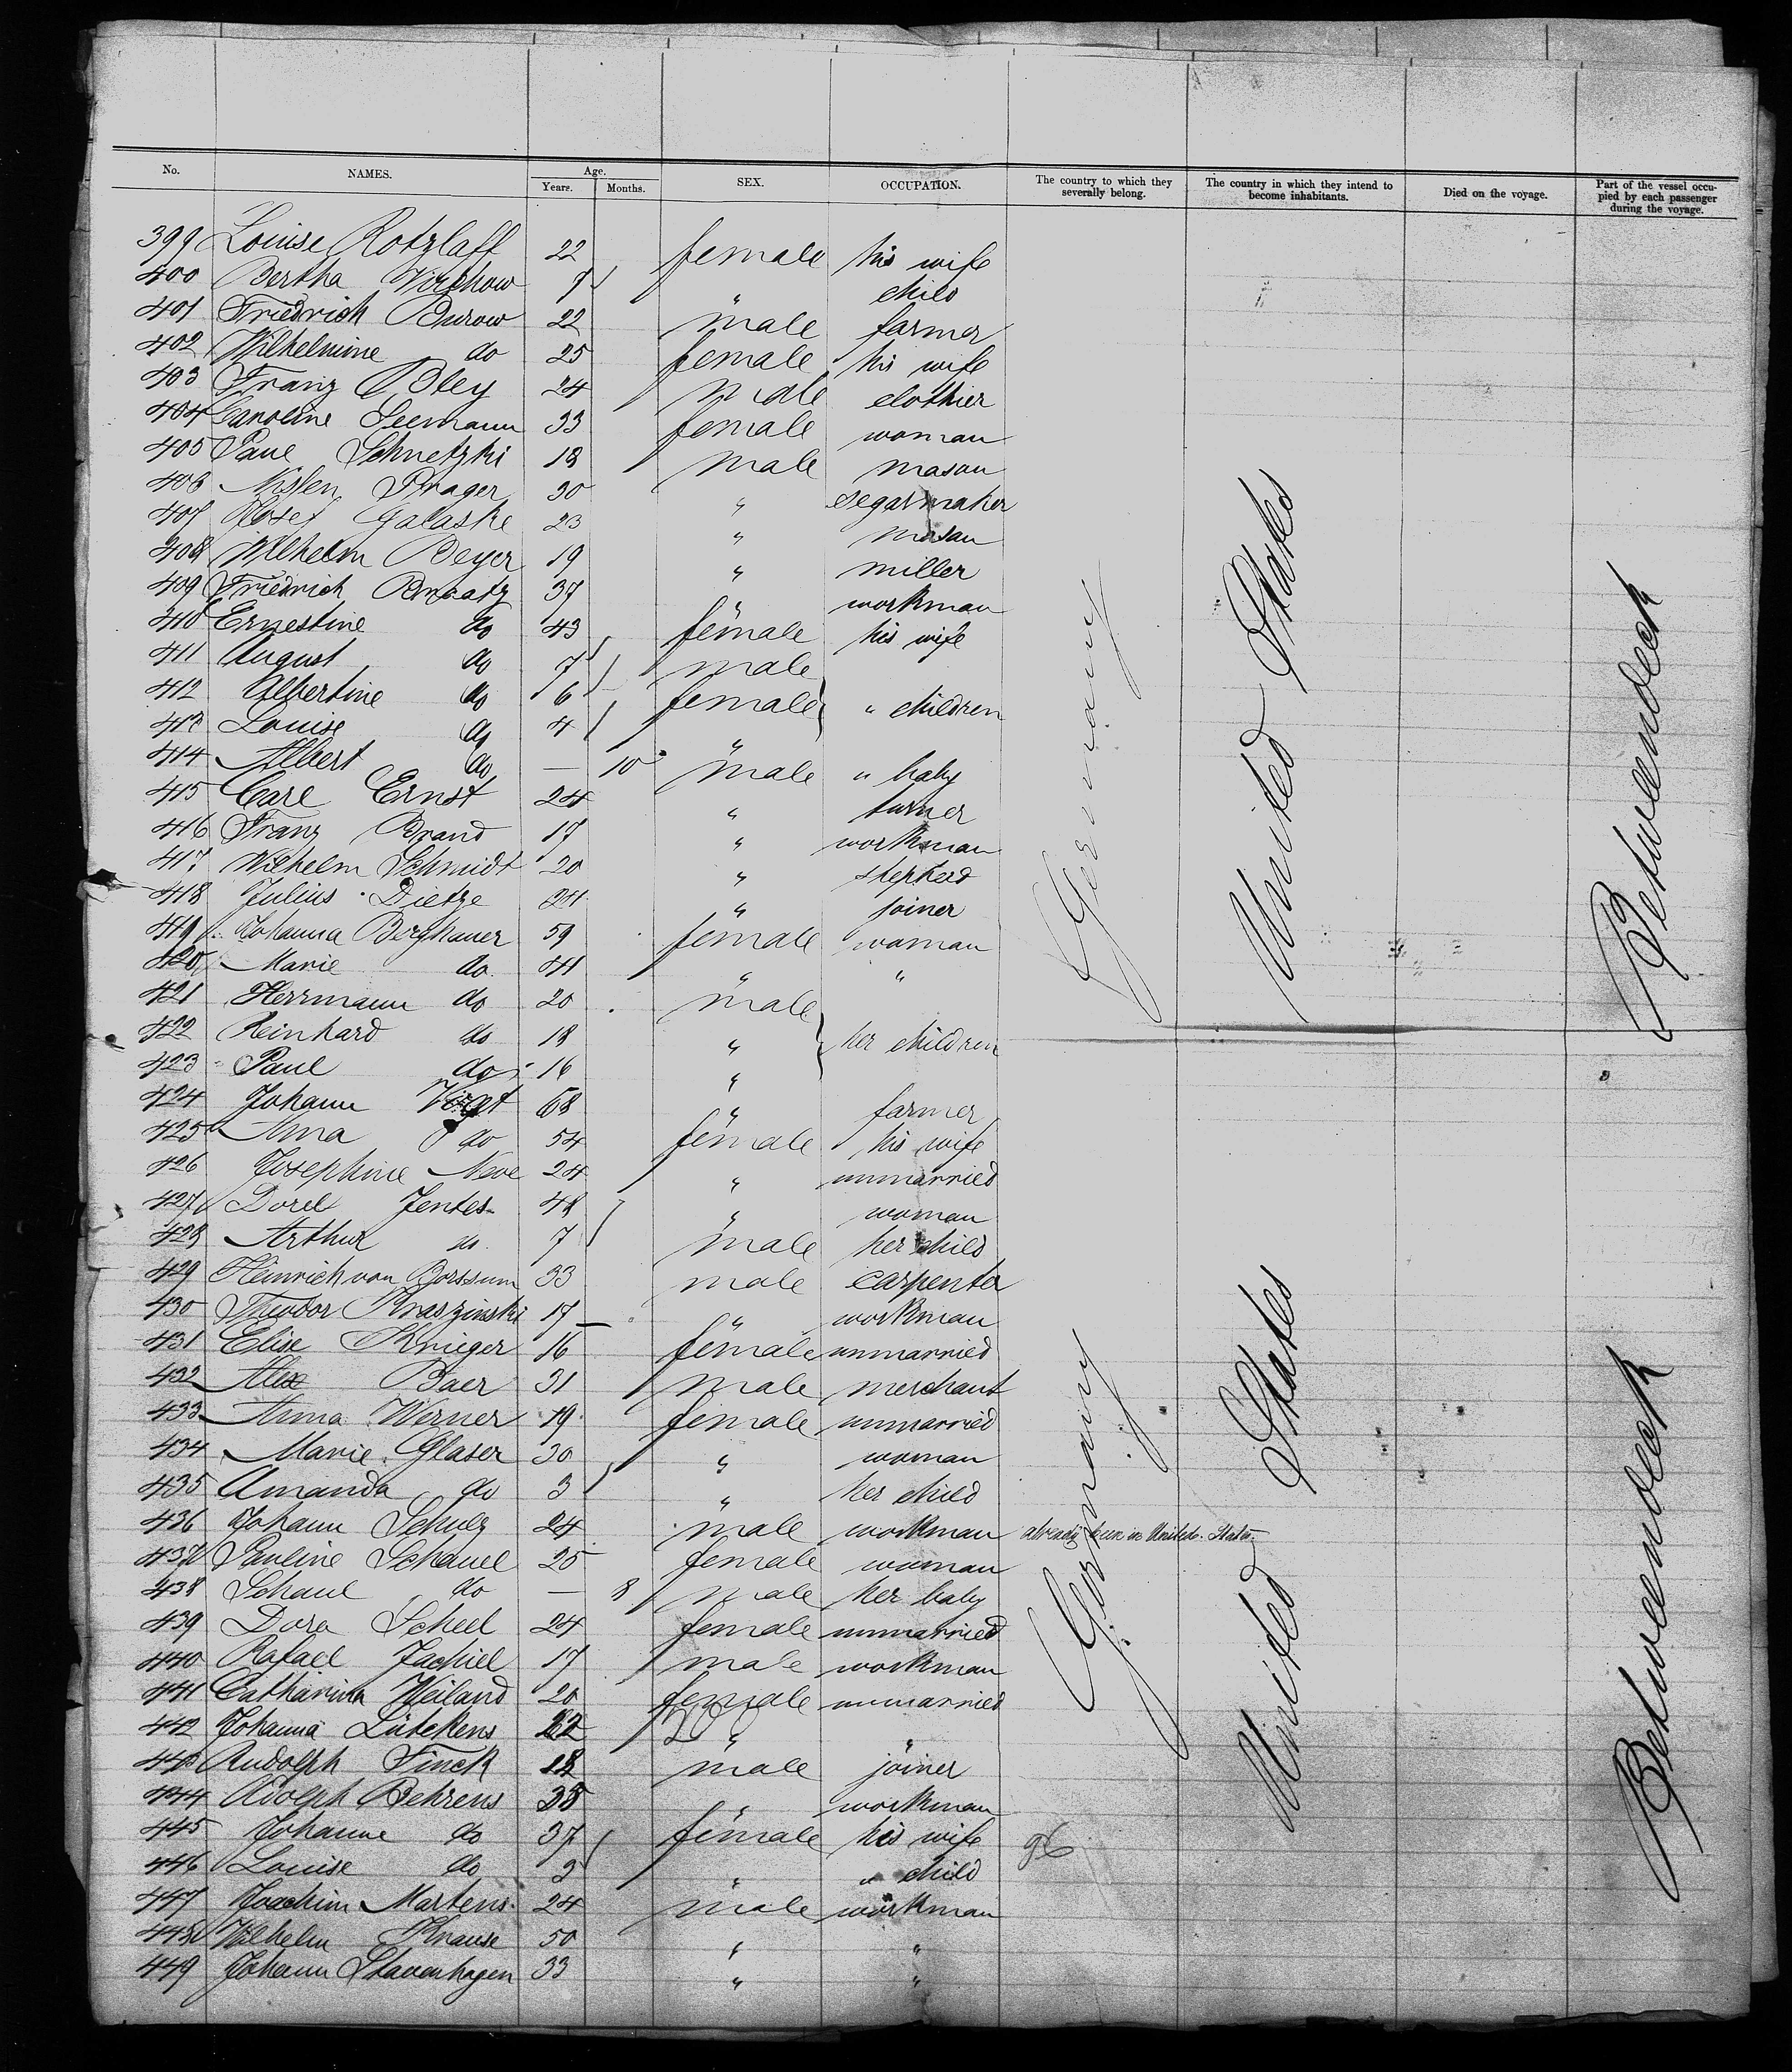 No. NAMES. Age. Years. Months. SEX. OCCUPATION. The country to which they severally belong. The country in which they intend to become inhabitants. Died on the voyage. Part of the vessel occupied by each passenger during the voyage.
399 Louise Rotzlaff 22 female his wife
400 Bertha Virchow 9 " child
401 Friedrich Burow 22 male farmer
402 Wilhelmine do 25 female his wife
403 Franz Bley 24 male clothier
404 Caroline Seemann 33 female woman
405 Paul Schnetzki 18 male mason
406 Nissen Prager 30 " segarmaker
407 Josef Galaske 23 " mason
408 Wilhelm Beyer 19 " miller
409 Friedrich Braatz 37 " workman
410 Ernestine do 43 female his wife
411 August do 7 male
412 Albertine do 6 female " children
413 Louise do 4 "
414 Albert do — 10 male " baby
415 Carl Ernst 24 " turner
416 Franz Brand 17 " workman
417 Wilhelm Schmidt 20 " shepherd
418 Julius Dietze 24 " joiner
419 Johanna Berghauer 59 female woman
420 Marie do 41 " "
421 Herrmann do 20 male
422 Reinhard do 18 " her children
423 Paul do 16 "
424 Johann Voigt 68 " farmer
425 Anna do 54 female his wife
426 Josephine Neve 24 " unmarried
427 Dorel Jentes 48 " woman
428 Arthur do 7 male her child
429 Heinrich von Borssum 33 male carpenter
430 Theodor Kraszinski 17 " workman
431 Elise Krueger 16 female unmarried
432 Alex Baer 31 male merchant
433 Anna Werner 19 female unmarried
434 Marie Glaser 30 " woman
435 Amanda do 3 " her child
436 Johann Schulz 24 male workman already been in United States
437 Pauline Schaul 25 female woman
438 Schaul do — 8 male her baby
439 Dora Scheel 24 female unmarried
440 Rafael Jachiel 17 male workman
441 Catharina Weiland 20 female unmarried
442 Johanna Lütckens 22 " "
443 Rudolph Finck 18 male joiner
444 Adolph Behrens 38 " workman
445 Johanne do 37 female his wife
446 Louise do 3 " " child
447 Joachim Martens 24 male workman
448 Wilhelm Krause 50 " "
449 Johann Stavenhagen 33 " "
Germany
United States
Betweendeck
Germany
United States
Betweendeck